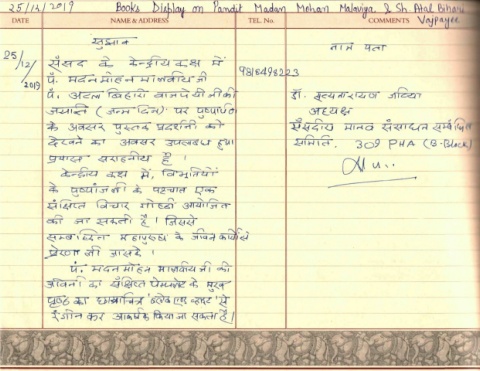 25/12/2019 Books Display on Pandit Madan Mohan Malaviya & Sh. Atal Bihari Vajpayee
DATE NAME & ADDRESS TEL. No. COMMENTS
25/12/2019
सुझाव
संसद के केन्द्रीय कक्ष में
पं. मदन मोहन मालवीय जी
पं. अटल बिहारी वाजपेयी जी की
जयन्ति (जन्म दिन) पर पुष्पार्पण
के अवसर पुस्तक प्रदर्शनी को
देखने का अवसर उपलब्ध हुवा
प्रयास सराहनीय है।
केन्द्रीय कक्ष में, विभूतियों
के पुष्पांजली के पश्चात एक
संक्षिप्त विचार गोष्ठी आयोजित
की जा सकती है। जिससे
सम्बन्धित महापुरुष के जीवन कार्यो से
प्रेरणा ली जासके।
पं. मदन मोहन मालवीय जी की
जीवनी का संक्षिप्त पेम्पलेट के मुख
पृष्ठ का छायाचित्र ब्लेक एण्ड व्हाइट से
रंगीन कर आकर्षक किया जा सकता है।
9868498223
नाम पता
डॉ. सत्यनारायण जटिया
अध्यक्ष
संसदीय मानव संसाधन सम्बन्धित
समिति. 309 PHA (B-Block)